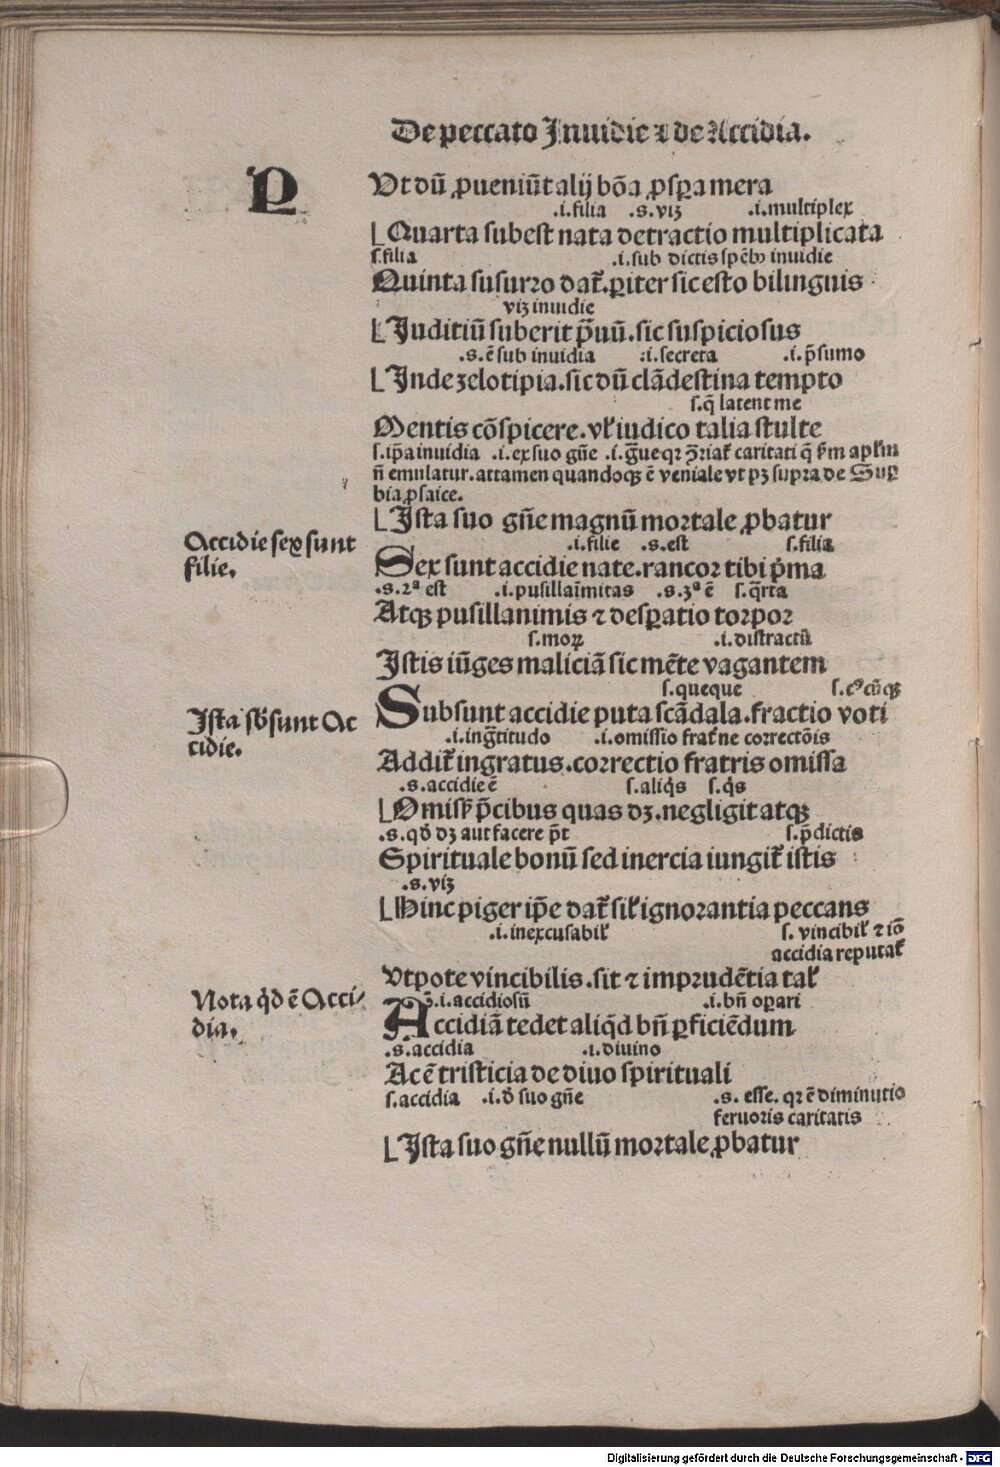 De peccato Inuidie ⁊ de Accidia.
P
Vt dū ꝓueniūt alij bōa ꝓsꝑa mera
.i.filia .s.viꝫ .i.multiplex
Quarta subest nata detractio multiplicata
s.filia .i.sub dictis spēbꝰ inuidie
Quinta susurro dat̄.ꝑiter sic esto bilinguis
viꝫ inuidie
Iuditiū suberit p̄uū.sic suspiciosus
.s.ē sub inuidia .i.secreta .i.p̄sumo
Inde zelotipia.sic dū clādestina tempto
s.q̄ latent me
Mentis cōspicere.vł iudico talia stulte
s.ip̄a inuidia .i.ex suo gn̄e .i.ḡue qꝛ ꝯ̄riat̄ caritati q̄ ẜm apłm
n̄ emulatur.attamen quandoqꝫ ē veniale vt pꝫ supra de Suꝑ
bia ꝓsaice.
Ista suo gn̄e magnū mortale ꝓbatur
Accidie sex sunt
filie.
.i.filie .s.est s.filia
Sex sunt accidie nate.rancor tibi p̓ma
.s.2ᵃ est .i.pusillaīmitas .s.3ᵃ ē s.q̄rta
Atqꝫ pusillanimis ⁊ despatio torpor
s.moꝝ .i.distractū
Istis iūges maliciā sic mēte vagantem
s.queque s.cꝰcūqꝫ
Ista sb̄sunt Ac
cidie.
Subsunt accidie puta scādala.fractio voti
.i.ing̓titudo .i.omissio frat̄ne correctōis
Addit̄ ingratus.correctio fratris omissa
.s.accidie ē s.aliq̓s s.q̓s
Omisẜ p̄cibus quas dꝫ.negligit atqꝫ
.s.qđ dꝫ aut facere p̄t s.p̄dictis
Spirituale bonū sed inercia iungit̄ istis
.s.viꝫ
Hinc piger ip̄e dat̄ sił ignorantia peccans
.i.inexcusabił s. vincibił ⁊ iō
accidia reputat̄
Vtpote vincibilis.sit ⁊ imprudētia tał
Nota q̓d ē Acci⸗
dia.
.i.accidiosū .i.bn̄ oꝑari
Accidiā tedet aliq̓d bn̄ ꝑficiēdum
.s.accidia .i.diuino
Ac ē tristicia de diuo spirituali
s.accidia .i.đ suo gn̄e .s. esse. qꝛ ē diminutio
feruoris caritatis
Ista suo gn̄e nullū mortale ꝓbatur
Digitalisierung gefördert durch die Deutsche Forschungsgemeinschaft - DFG